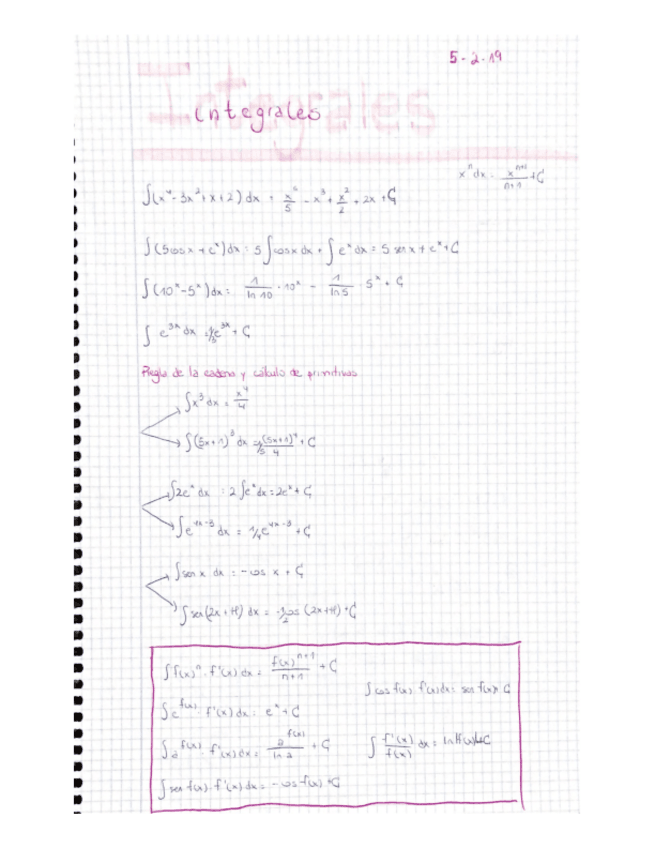 5-2-19
Integrales
x^n dx = x^(n+1)/(n+1) + C
∫(x⁴-3x²+x+2) dx = x⁵/5 - x³ + x²/2 + 2x + C
∫(5cos x + e^x) dx = 5∫cos x dx + ∫e^x dx = 5 sen x + e^x + C
∫(10^x-5^x) dx = 1/ln 10 · 10^x - 1/ln 5 · 5^x + C
∫ e^(3x) dx = 1/3 e^(3x) + C
Regla de la cadena y cálculo de primitivas
∫x³ dx = x⁴/4
∫(5x+1)³ dx = 1/5 (5x+1)⁴/4 + C
∫2e^x dx = 2∫e^x dx = 2e^x + C
∫e^(4x-3) dx = 1/4 e^(4x-3) + C
∫sen x dx = -cos x + C
∫sen(2x+π) dx = -1/2 cos(2x+π) + C
∫f(x)^n · f'(x) dx = f(x)^(n+1)/(n+1) + C
∫cos f(x) · f'(x) dx = sen f(x) + C
∫e^(f(x)) · f'(x) dx = e^x + C
∫a^(f(x)) · f'(x) dx = a^(f(x))/ln a + C
∫f'(x)/f(x) dx = ln|f(x)| + C
∫sen f(x) · f'(x) dx = -cos f(x) + C